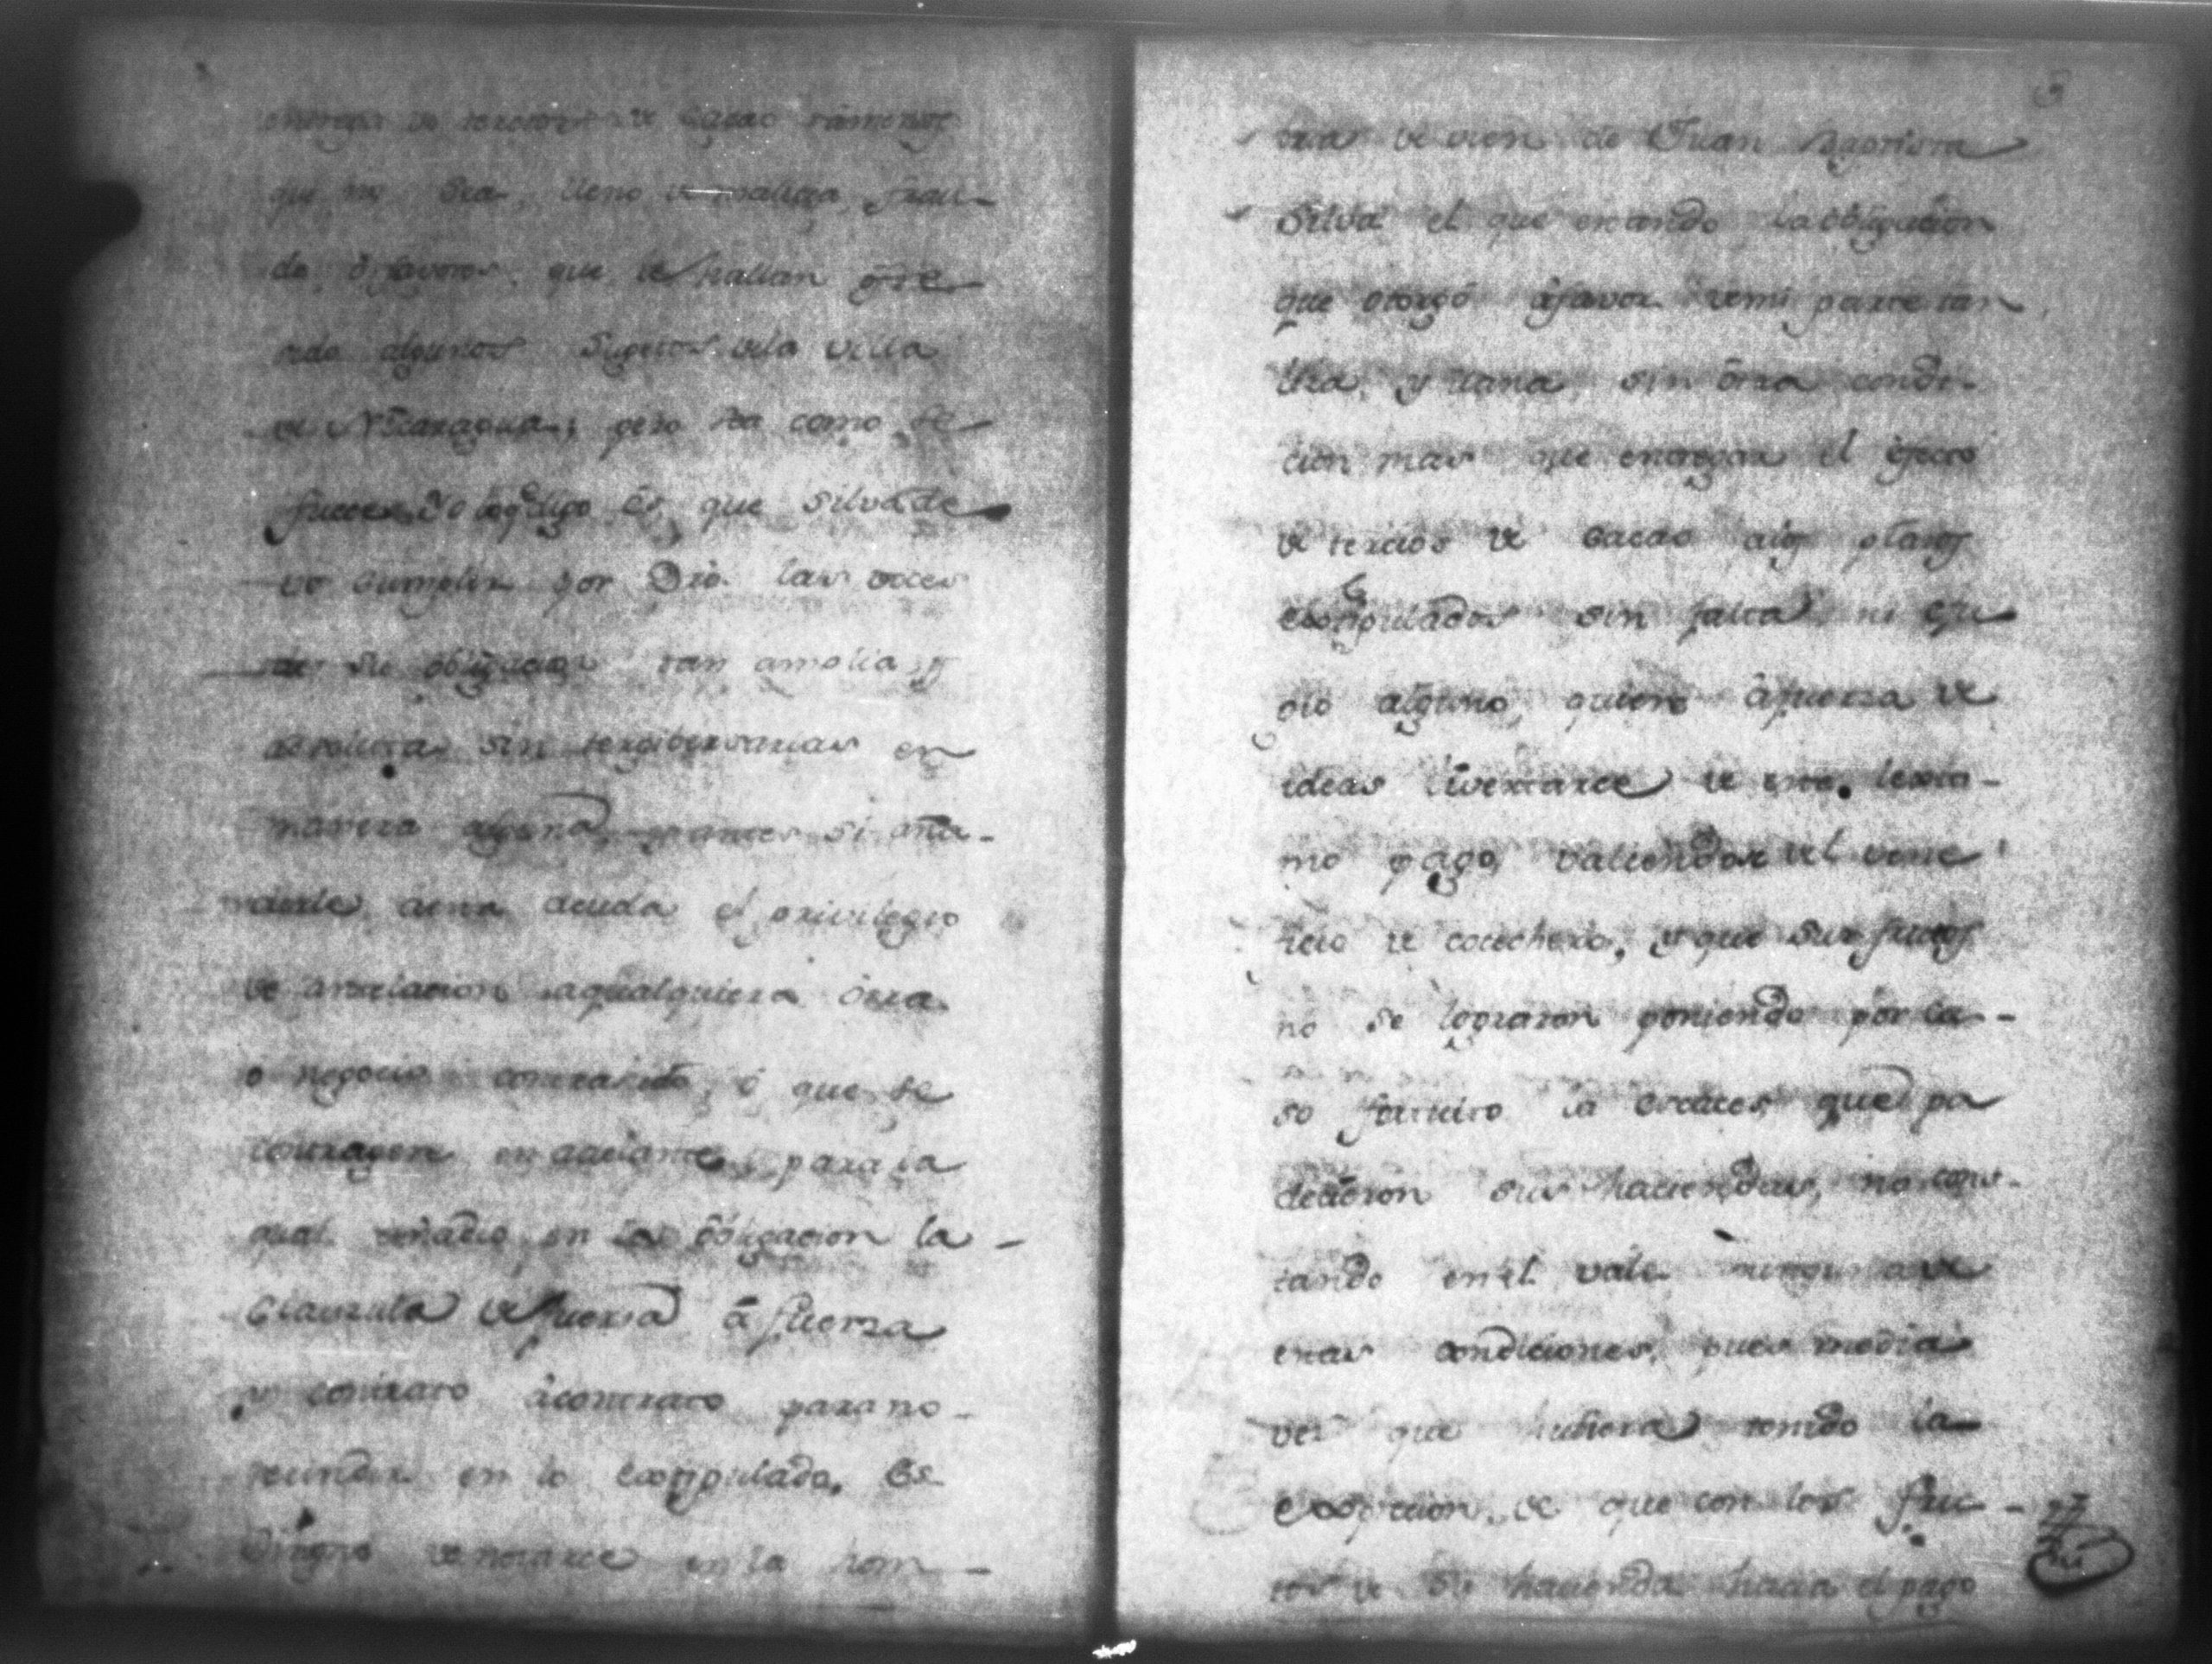 entrega de tercios de Cacao rámenos
que no sea, lleno de malicia, frau-
de, ó favores, que se hallan
algunos Sugetos dela villa
de Nicaragua; pero sea como se
fuere, Yo loq.e digo és, que Silva de
vó cumplir por Dro. las voces
de su obligacion tan amplia, y
absoluta, sin tergiversarlas en
manera alguna, si aña-
dirle aena deuda el privilegio
de antelacion aqualquiera ótra
o negocio contraido, ó que se
contragere en adelante, para la
qual añadio en la óbligacion la
Clauzula de fuerza á fuerza
y contrato ácontrato para no
en lo Extipulado. Es
Digno denotarce en la hom-
3
tria de vien de Juan Baptista
Silva el que estando la obligacion
que otorgó áfavor demi parte tan
liza, y llana, sin ótra condi-
cion mas que entregar el éfecto
de tercios de Cacao alos plazos
extipulados sin falta ni Equi
bio alguno, quiere áfuerza de
ideas livertarce de este lexiti-
mo pago, valiendose del vene
ficio de cocechero, y que sus frutos
no se lograron poniendo por ca-
so fortuito la Escaces que pa
decieron sus haciendas, no cons-
tando enél vale ninguna de
estas condiciones, pues media
vez que hubiera tenido la
Excepcion, de que con los fruc-
tos de su hacienda hacia el pago